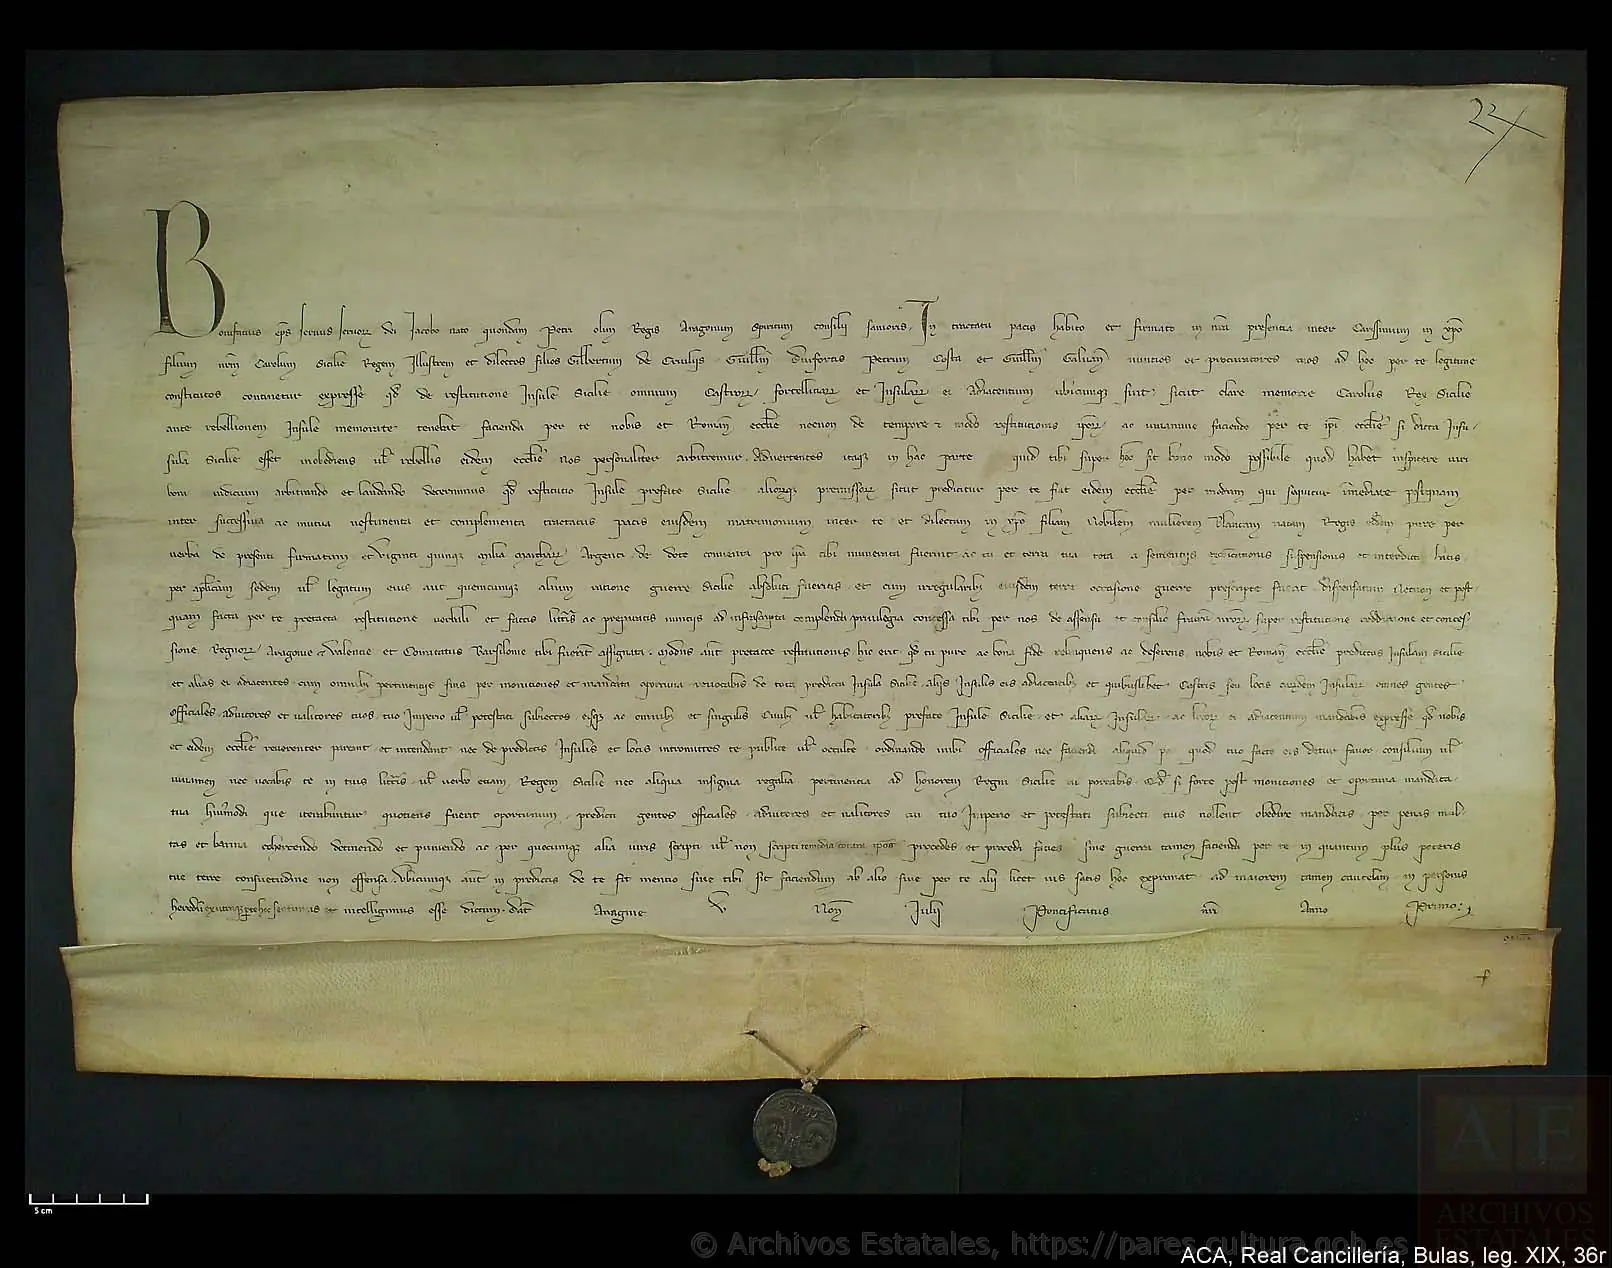 22
Bonifatius eps servus servorz dei Jacobo nato quondam Petri olim Regis Aragonum Spiritum consilii sanioris. In tractatu pacis habito et firmato in nra presentia inter Carissimum in xpo
filium nrm Carolum Sicilie Regem Illustrem et dilectos filios Gilbertum de Crudiliis Guillm Petrum Costa et Guillm Galvani nuntios et procuratores tuos ad hoc per te legitime
constitutos continetur expresse qd de restitutione Insule Sicilie omnium Castrorz fortellitiarz et Insularz ei Adiacentium ubicunque sint sicut clare memorie Carolus Rex Sicilie
ante rebellionem Insule memorate tenebat facienda per te nobis et Romane ecclie necnon de tempore et modo restitutionis ipsorz ac iuvamine faciendo per te ipi ecclie si dicta Insu-
sula Sicilie esset inobediens vl rebellis eidem ecclie nos personaliter arbitremur. Advertentes itaqz in hac parte quid tibi super hoc sit bono modo possibile quod habet inspicere viri
boni iudicium arbitrando et laudando decernimus qd restitutio Insule prefate Sicilie aliorqz premissorz sicut predicitur per te fiat eidem ecclie per modum qui sequitur imediate postquam
inter successiva ac mutua iuramenta et complementa tractatus pacis eiusdem matrimonium inter te et dilectam in xpo filiam Nobilem mulierem Blancam natam Regis eiusdem pure per
verba de presenti firmatum et viginti quinqz milia marcharz Argenti de dote conventa pro qua tibi munimenta fuerint ac tu et terra tua tota a sententiis excoicationis suspensionis et interdicti latis
per aplicam sedem vl legatum eius aut quemcumqz alium ratione guerre Sicilie absoluti fueritis et cum irregularibz eiusdem terre occasione guerre prescripte fuerat dispensatum Necnon et post-
quam facta per te pretacta restitutione verbali et factis litteris ac preparatis nuntiis ad infrascripta complenda privilegia concessa tibi per nos de assensu et consilio fratrum nrorz super restitutione et conces-
sione Regnorz Aragonie et Valencie et Comitatus Barsilonie tibi fuerint assignata. Modus aut pretacte restitutionis hic erit qd tu pure ac bona fide relinquens ac deserens nobis et Romane ecclie predictas Insulam Sicilie
et alias ei adiacentes cum omnibz pertinentiis suis per monitiones et mandata oportuna revocabis de tota predicta Insula Sicilie aliis Insulis eis adiacentibz et quibuslibet Castris seu locis earumdem Insularz omnes gentes
Officiales adiutores et valitores tuos tuo Imperio vl potestati subiectos eisqz ac omnibz et singulis Civibz vl habitatoribz prefate Insule Sicilie et aliarz Insularz ac locorz ei adiacentium mandabis expresse qd nobis
et eidem ecclie reverenter pareant et intendant nec de predictis Insulis et locis intromittes te publice vl occulte ordinando inibi officiales nec faciendi aliquid quod tuo facto eis detur favor consilium vl
iuvamen nec vocabis te in tuis litteris vl verbo etiam Regem Sicilie nec aliqua insignia regalia pertinentia ad honorem Regni Sicilie portabis Qd si forte post monitiones et oportuna mandata
tua huiusmodi que iterabuntur quotiens fuerit oportunum predicti gentes officiales adiutores et valitores tui tuo Imperio et potestati subiecti tuis nollent obedire mandatis per penas mul-
tas et banna cohercendo detinendo et puniendo ac per quecumque alia iuris scripti vl non scripti remedia contra ipsos procedes et procedi facies sine guerra tamen facienda per te in quantum plus poteris
tue terre consuetudine non offensa. Ubicunqz aut in predictis de te fit mentio sive tibi sit faciendum ab alio sive per te alii licet ius satis hoc exprimat ad maiorem tamen cautelam in personis
heredum intelligimus esse dictum. Dat Anagnie V Non Julii Pontificatus nri Anno Primo.
5 cm
© Archivos Estatales, https://pares.cultura.gob.es
AE
ARCHIVOS
ESTATALES
ACA, Real Cancillería, Bulas, leg. XIX, 36r